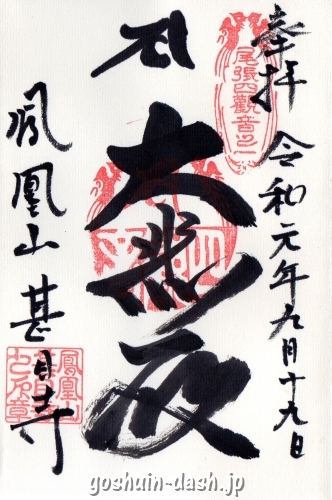 奉拝 令和元年九月十九日
尾張四観音之一
大悲殿
鳳凰山 甚目寺
鳳凰山
goshuin-dash.jp